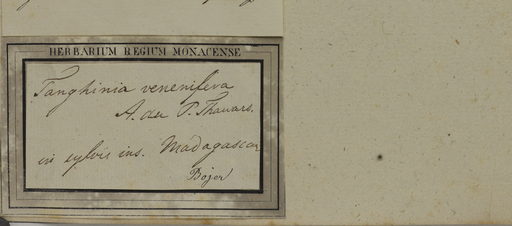 HERBARIUM REGIUM MONACENSE
Tanghinia venenifera
A. du P. Thouars.
in sylvis ins. Madagascar
Bojer